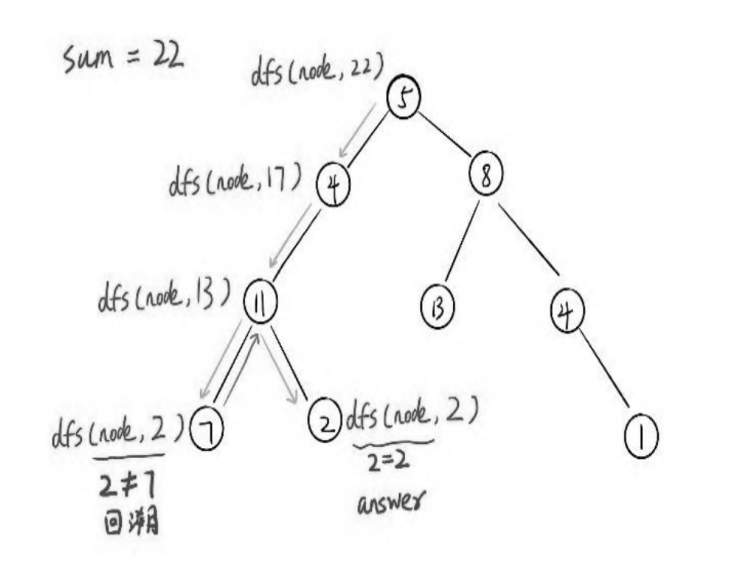 sum = 22
dfs(node,22)
5
dfs(node,17)
4
8
dfs(node,13)
11
13
4
dfs(node,2)
7
2
dfs(node,2)
1
2≠7
2=2
回溯
answer